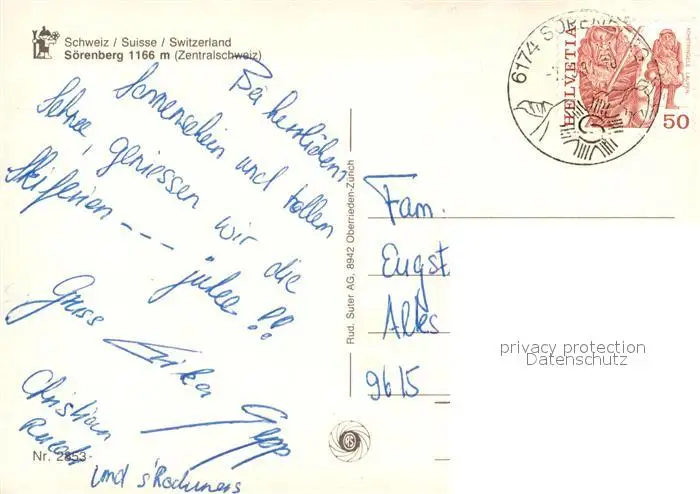 Schweiz / Suisse / Switzerland
Sörenberg 1166 m (Zentralschweiz)
Bei herrlichem
Sonnenschein und tollem
Schnee, geniessen wir die
Skiferien --- juhee!!
Gruss
Christian
und s'Roduners
Nr. 2853
Rud. Suter AG, 8942 Oberrieden-Zürich
6174 SÖRENBERG
HELVETIA
50
Fam.
Eugst
Altes
9615
privacy protection
Datenschutz